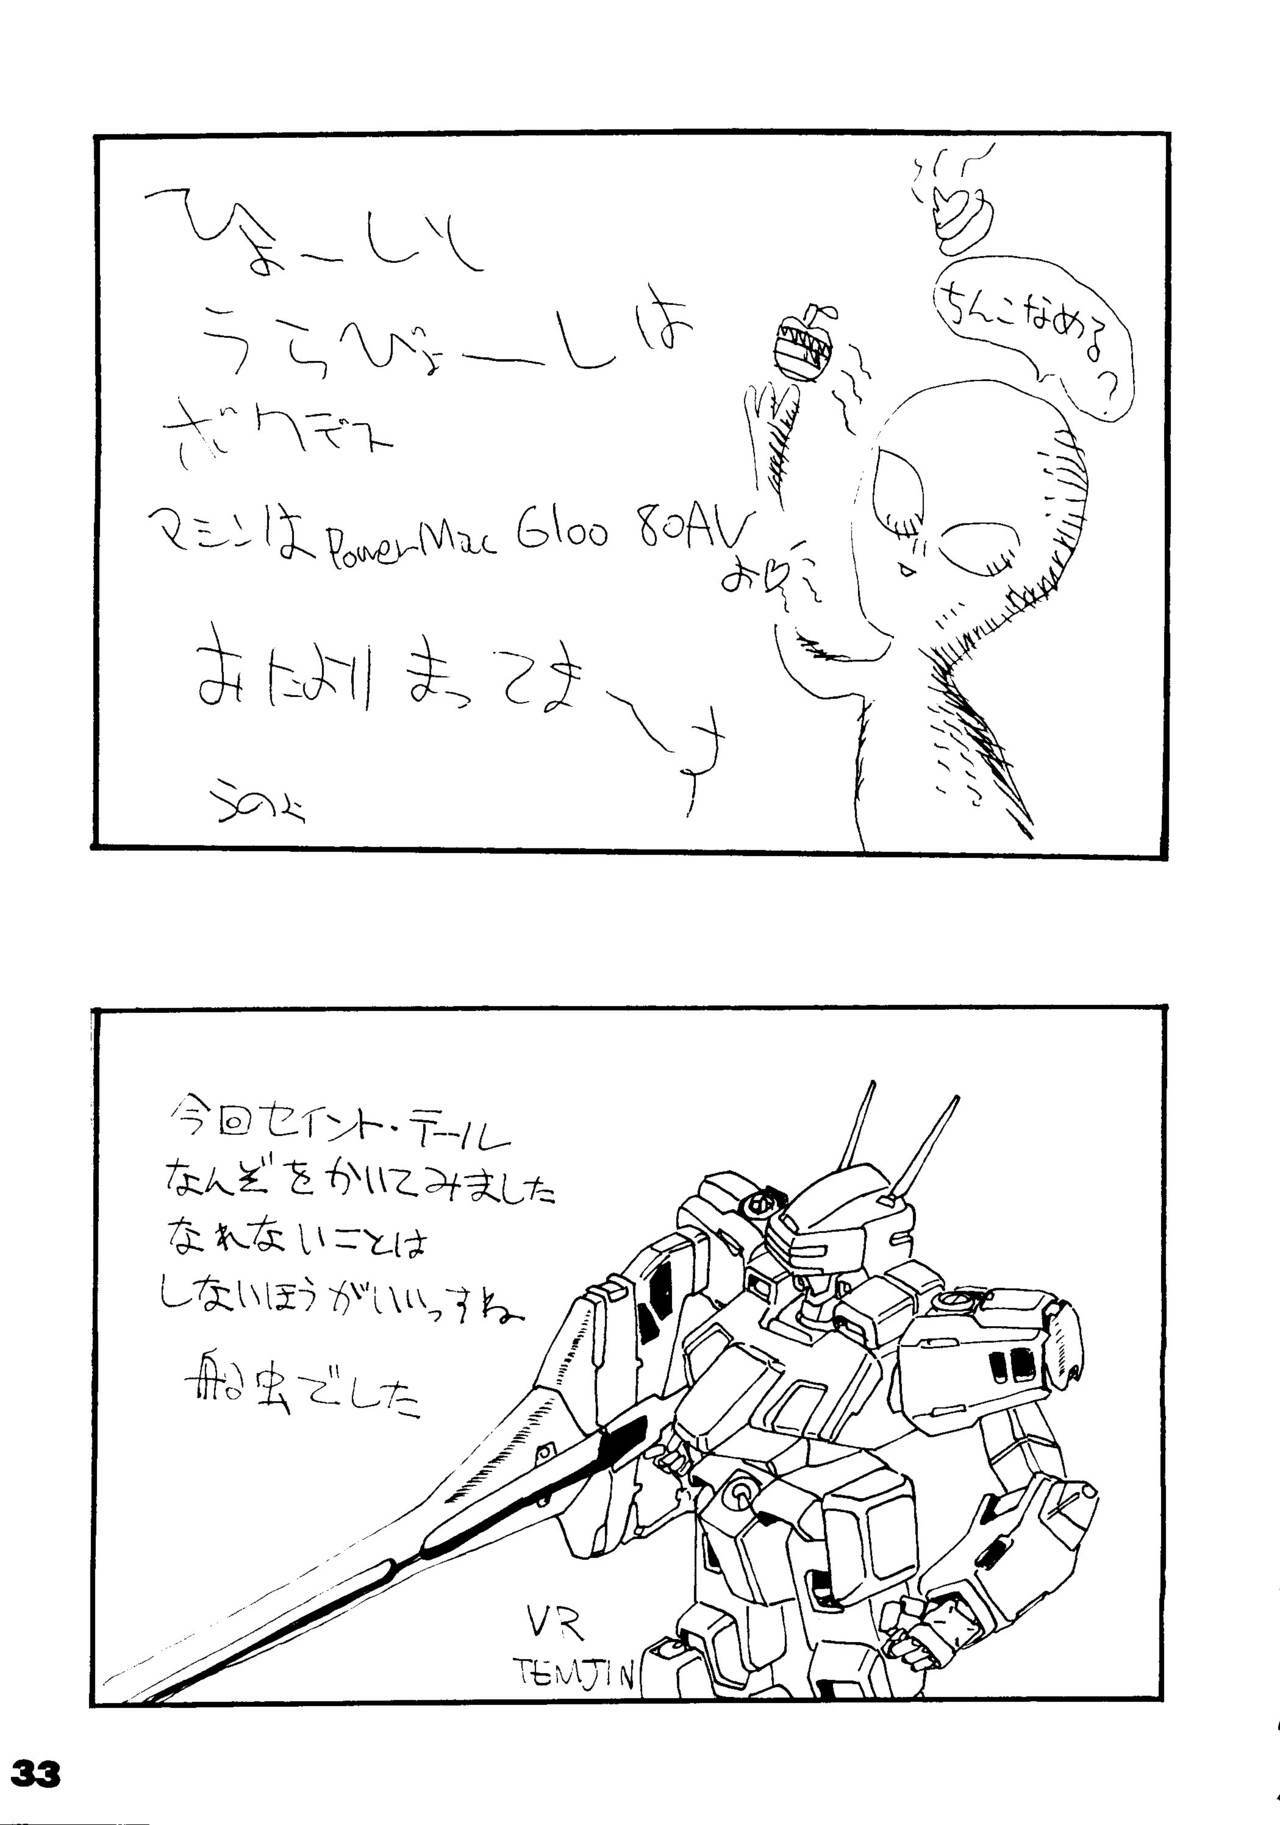 ひょーしと
うらびょーしは
ボクデス
マシンはPowerMac 6100 80AV
おたよりまってまーす
うのよ
ちんこなめる?
今回セイント・テール
なんぞをかいてみました
なれないことは
しないほうがいいっすね
船虫でした
VR
TEMJIN
33